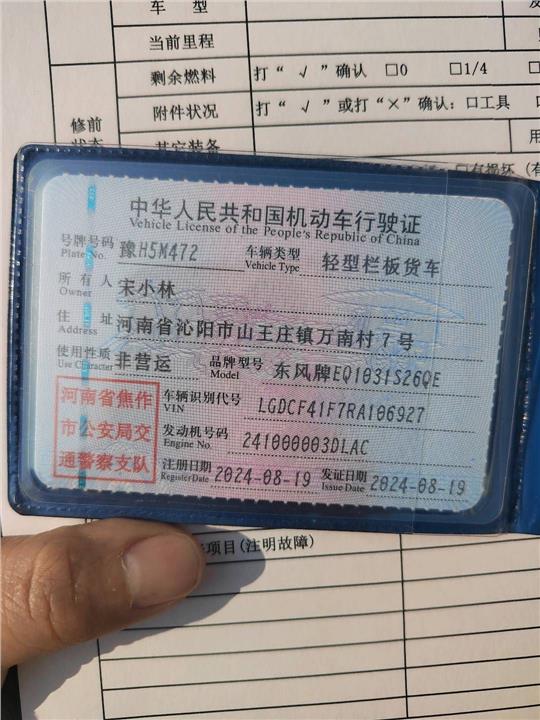 车 型
当前里程
剩余燃料 打“ √ ”确认 □0 □1/4
修前 附件状况 打“ √ ”或打“×”确认：口工具
状态 其它装备
□有损坏（有
中华人民共和国机动车行驶证
Vehicle License of the People's Republic of China
号牌号码 Plate No. 豫H5M472 车辆类型 Vehicle Type 轻型栏板货车
所有人 Owner 宋小林
住址 Address 河南省沁阳市山王庄镇万南村7号
使用性质 Use Character 非营运 品牌型号 Model 东风牌EQ1031S26QE
河南省焦作 车辆识别代号 VIN LGDCF41F7RA106927
市公安局交 发动机号码 Engine No. 241000003DLAC
通警察支队 注册日期 Register Date 2024-08-19 发证日期 Issue Date 2024-08-19
项目(注明故障)